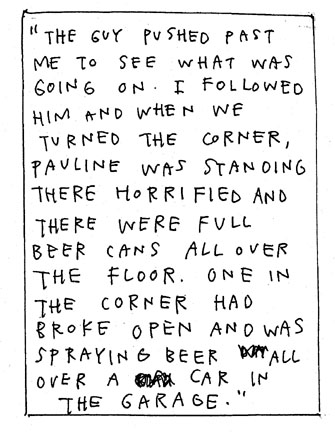 "THE GUY PUSHED PAST
ME TO SEE WHAT WAS
GOING ON. I FOLLOWED
HIM AND WHEN WE
TURNED THE CORNER,
PAULINE WAS STANDING
THERE HORRIFIED AND
THERE WERE FULL
BEER CANS ALL OVER
THE FLOOR. ONE IN
THE CORNER HAD
BROKE OPEN AND WAS
SPRAYING BEER ALL
OVER A CAR IN
THE GARAGE."